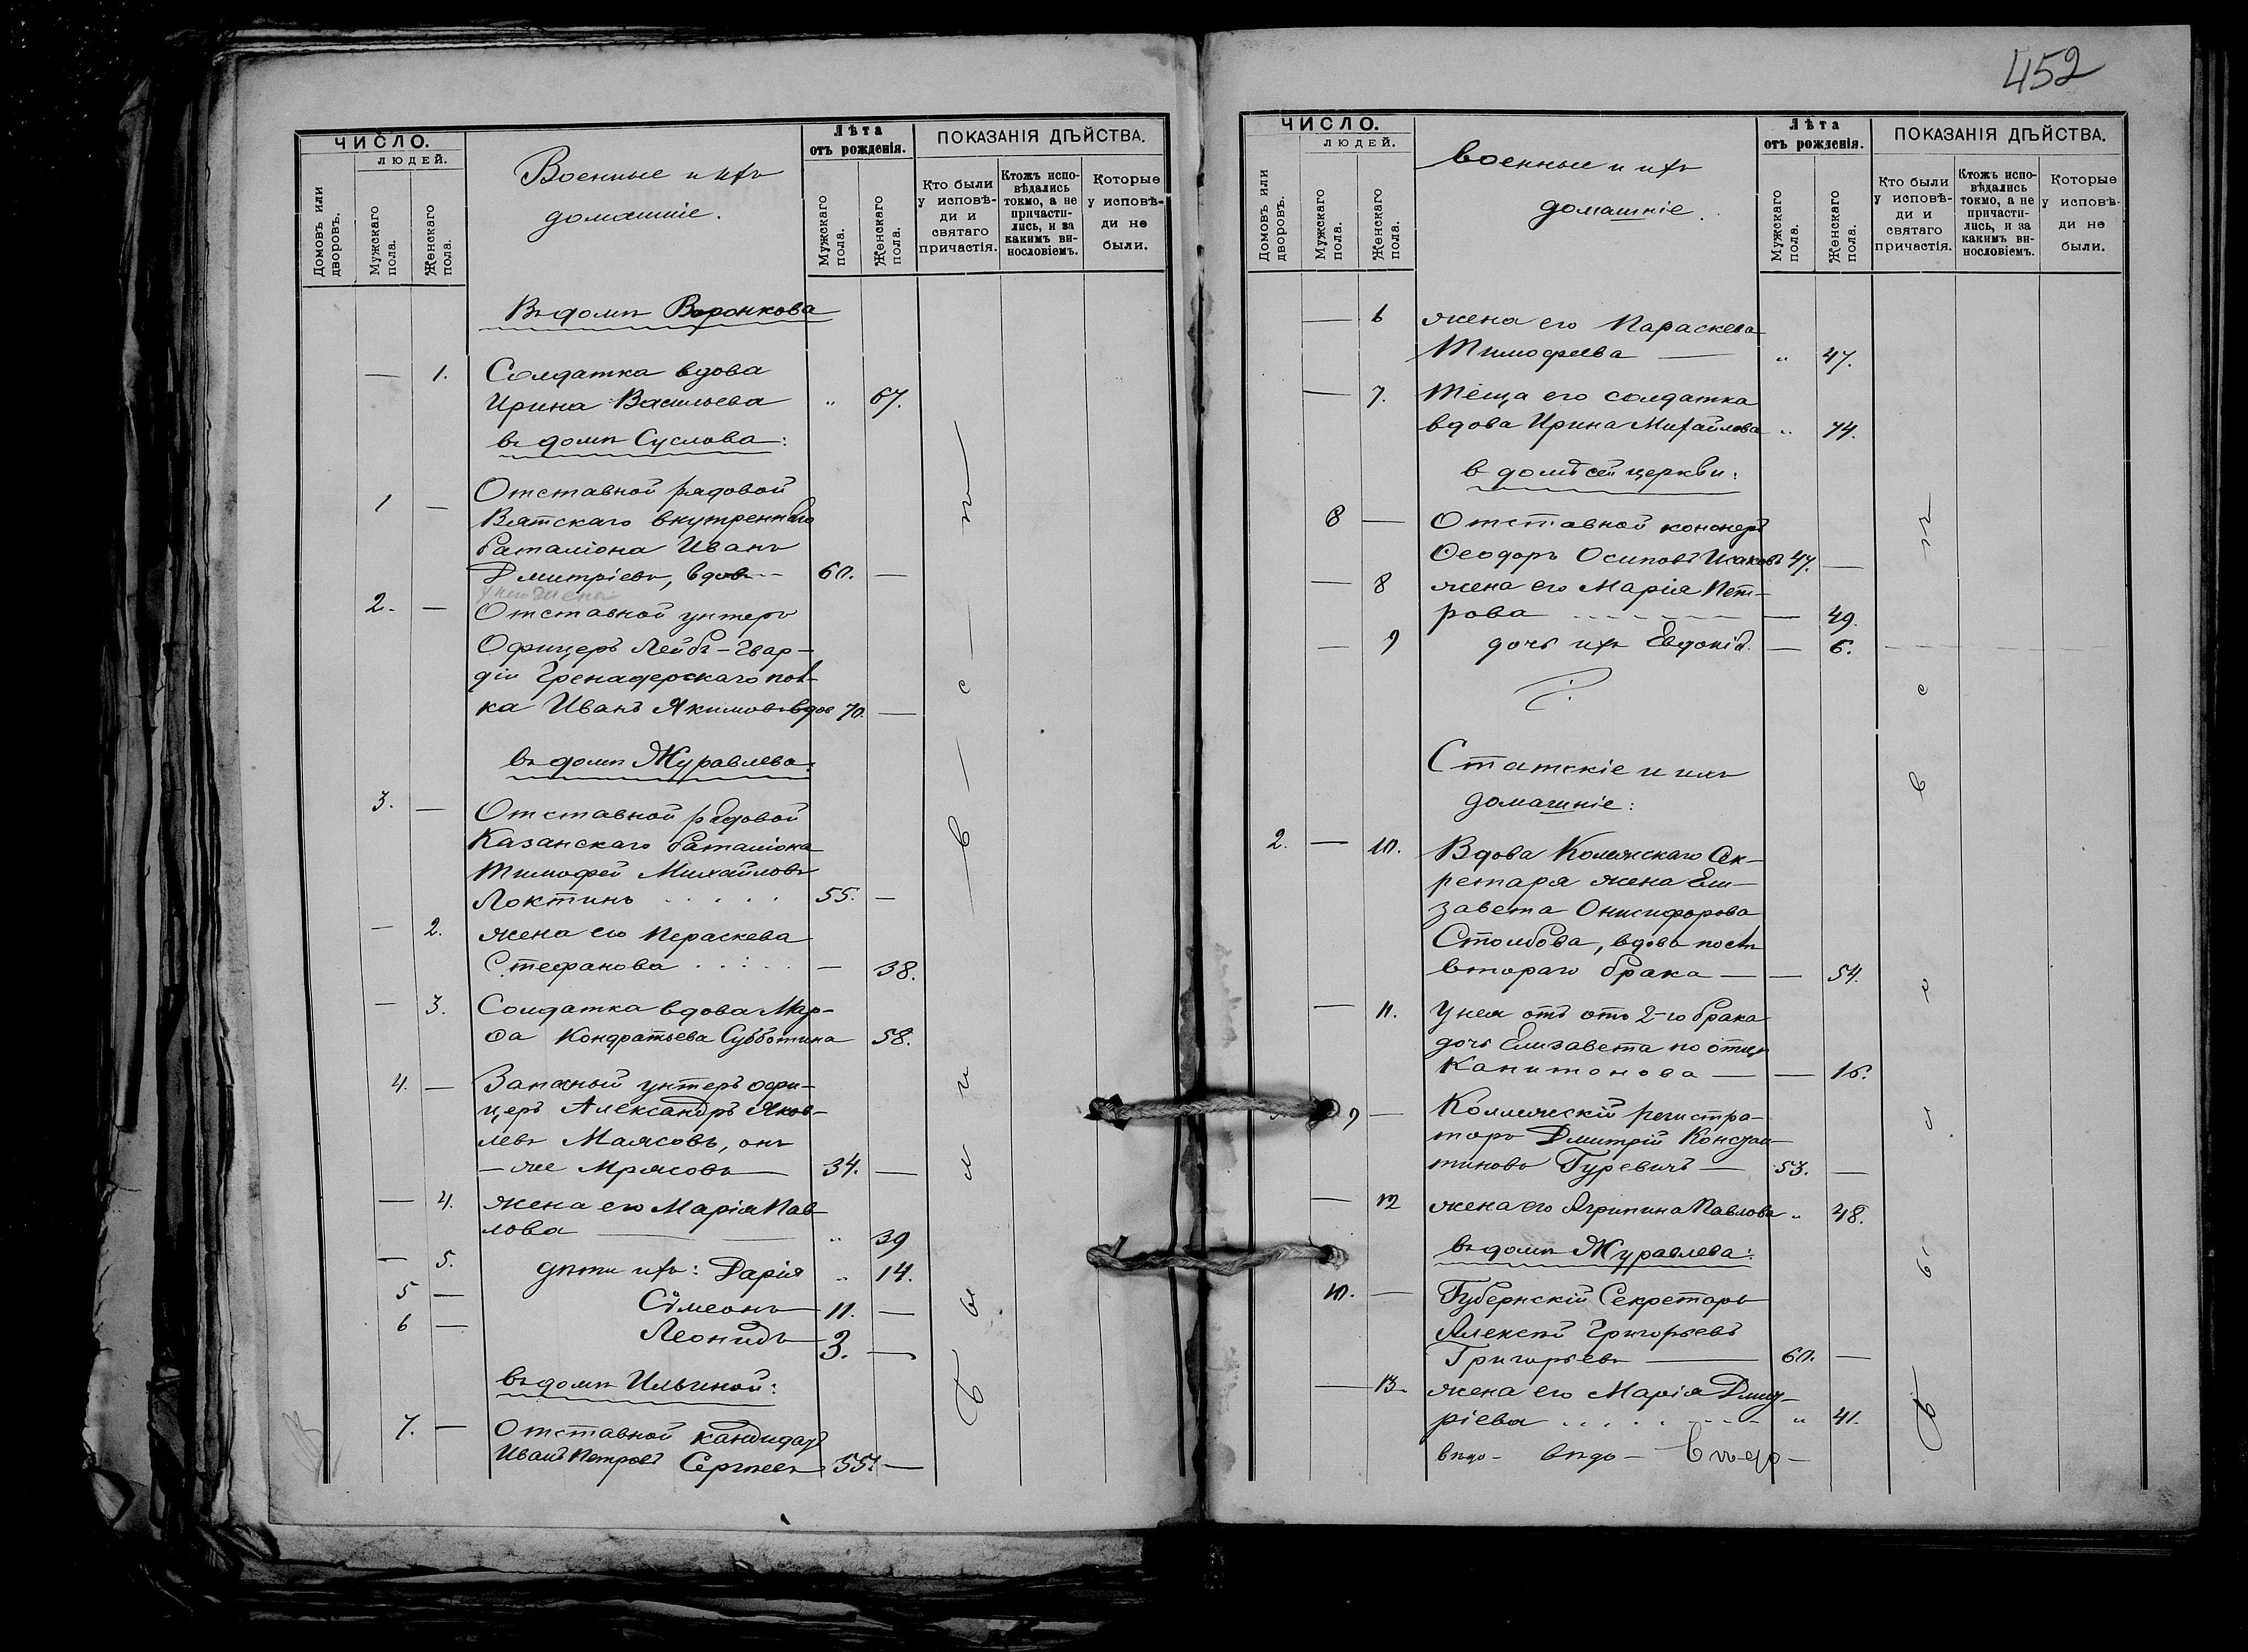 ЧИСЛО.
ЛЮДЕЙ.
Домовъ или дворовъ.
Мужскаго пола.
Женскаго пола.
Военные и ихъ
домашніе.
Лѣта
отъ рожденія.
Мужскаго пола.
Женскаго пола.
ПОКАЗАНІЯ ДѢЙСТВА.
Кто были у исповѣ-ди и святаго причастія.
Ктожъ испо-вѣдались токмо, а не причасти-лись, и за какимъ ви-нословіемъ.
Которые у исповѣ-ди не были.
Въ домѣ Воронкова
— 1. Солдатка вдова
Ирина Васильева „ 67.
въ домѣ Суслова:
1 — Отставной рядовой
Вятскаго внутренняго
баталіона Иванъ
Дмитріевъ, вдовъ 60. —
2. — Отставной унтеръ
Офицеръ Лейбъ-Гвар-
діи Гренадерскаго пол-
ка Иванъ Якимовъ вдов 70. —
въ домѣ Журавлева:
3. — Отставной рядовой
Казанскаго баталіона
Тимофей Михайловъ
Локтинъ 55. —
— 2. жена его Параскева
Стефанова — 38.
— 3. Солдатка вдова Мар-
ѳа Кондратьева Субботина 58.
4. — Запасный унтеръ офи-
церъ Александръ Яков-
левъ Маясовъ, онъ
— же Мрясовъ 34. —
— 4. жена его Марія Пав-
лова „ 39
— 5. дѣти ихъ: Дарія „ 14.
5 — Сѵмеонъ 11. —
6 — Леонидъ 3. —
въ домѣ Ильиной:
7. — Отставной кандидатъ
Иванъ Петровъ Сергѣевъ 55. —
452
ЧИСЛО.
ЛЮДЕЙ.
Домовъ или дворовъ.
Мужскаго пола.
Женскаго пола.
Военные и ихъ
домашніе.
Лѣта
отъ рожденія.
Мужскаго пола.
Женскаго пола.
ПОКАЗАНІЯ ДѢЙСТВА.
Кто были у исповѣ-ди и святаго причастія.
Ктожъ испо-вѣдались токмо, а не причасти-лись, и за какимъ ви-нословіемъ.
Которые у исповѣ-ди не были.
— 6 жена его Параскева
Тимофеева — „ 47.
— 7. Теща его солдатка
вдова Ирина Михайлова „ 74.
в домѣ сей церкви:
8 — Отставной
Ѳеодоръ Осиповъ Исаковъ 47. —
— 8 жена его Марія Пет-
рова — 49.
— 9 дочь ихъ Евдокія — 6.
Статскіе и ихъ
домашніе:
2. — 10. Вдова Коллежскаго Сек-
ретаря жена Ели-
завета Онисифорова
Столбова, вдова послѣ
втораго брака — — 54.
— 11. У нея отъ 2-го брака
дочь Елизавета по отцу
Капитонова — — 16.
9 — Коллежскій регистра-
торъ Дмитрій Констан-
тиновъ Гуревичъ — 53. —
— 12 жена его Агрипина Павлова „ 48.
въ домѣ Журавлева:
10. — Губернскій Секретарь
Алексѣй Григорьевъ
Григорьевъ — 60. —
— 13. жена его Марія Дмит-
ріева „ 41.